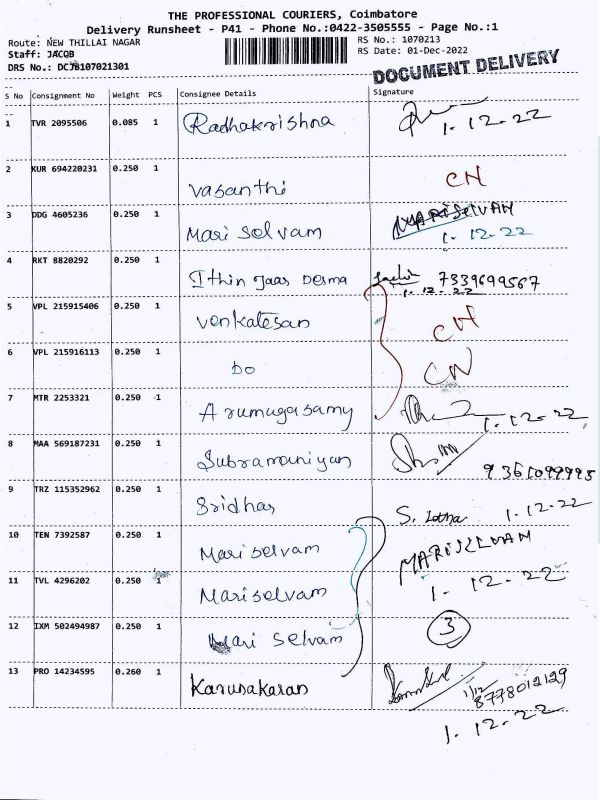 THE PROFESSIONAL COURIERS, Coimbatore
Delivery Runsheet - P41 - Phone No.:0422-3505555 - Page No.:1
Route: NEW THILLAI NAGAR
RS No.: 1070213
Staff: JACOB
RS Date: 01-Dec-2022
DRS No.: DCJB107021301
DOCUMENT DELIVERY
S No Consignment No Weight PCS Consignee Details Signature
1 TVR 2095506 0.085 1 Radhakrishna
1-12-22
2 KUR 694220231 0.250 1 Vasanthi CN
3 DDG 4605236 0.250 1 Mari Selvam MARISELVAM
1-12-22
4 RKT 8820292 0.250 1 Ithin Jaas Derma 7339699567
1-12-22
5 VPL 215915406 0.250 1 Venkatesan CN
6 VPL 215916113 0.250 1 Do CN
7 MTR 2253321 0.250 1 Arumugasamy 1-12-22
8 MAA 569187231 0.250 1 Subramaniyan 9361099995
9 TRZ 115352962 0.250 1 Sridhar S. Latha 1-12-22
10 TEN 7392587 0.250 1 Mariselvam MARISELVAM
11 TVL 4296202 0.250 1 Mariselvam 1-12-22
12 IXM 502494987 0.250 1 Mari Selvam 3
13 PRO 14234595 0.260 1 Karunakaran
1/12
8778012129
1-12-22